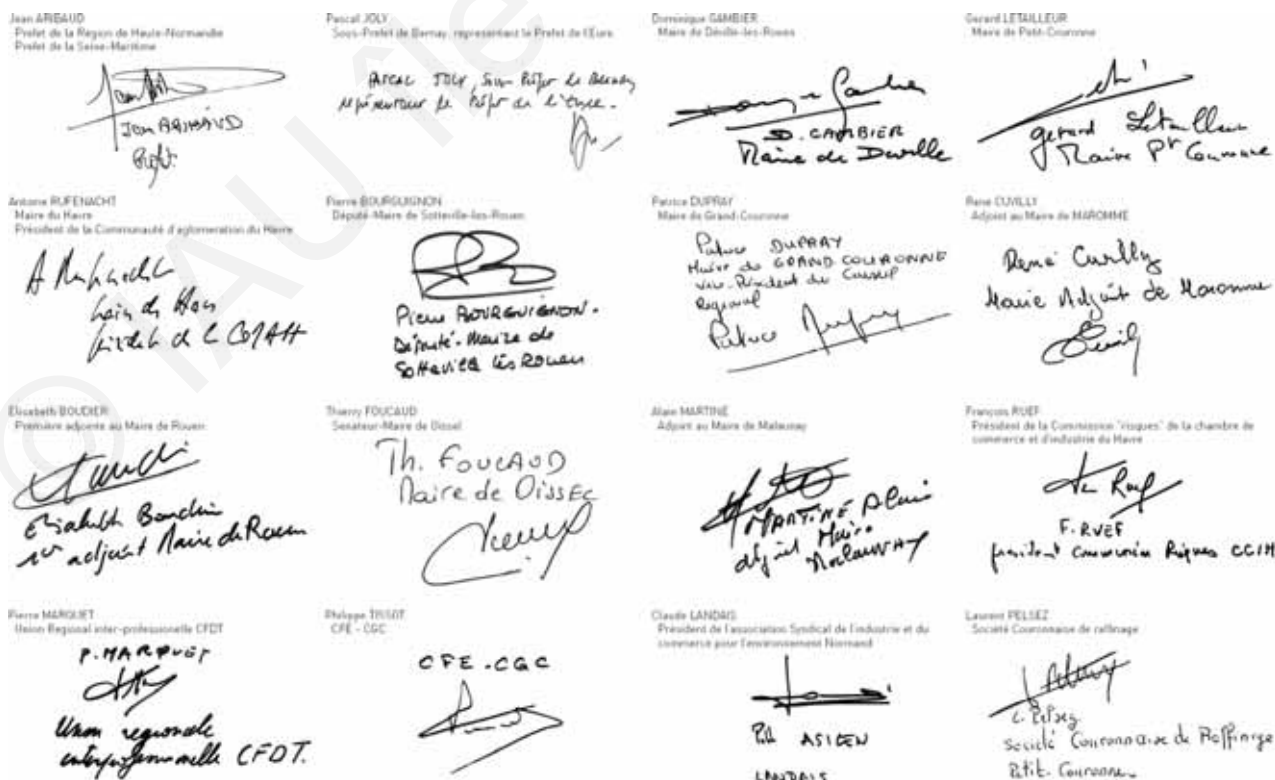 © IAU île
Jean ARIBAUD
Préfet de la Région de Haute-Normandie
Préfet de la Seine-Maritime
Jean ARIBAUD
Préfet
Pascal JOLY
Sous-Préfet de Bernay, représentant le Préfet de l'Eure
PASCAL JOLY, Sous Préfet de Bernay
représentant le Préfet de l'Eure.
Dominique GAMBIER
Maire de Déville-les-Rouen
D. GAMBIER
Maire de Deville
Gerard LETAILLEUR
Maire de Petit-Couronne
gerard Letailleur
Maire Pt Couronne
Antoine RUFENACHT
Maire du Havre
Président de la Communauté d'aglomeration du Havre
A Rufenacht
Pierre BOURGUIGNON
Député-Maire de Sotteville-les-Rouen
Pierre BOURGUIGNON.
Député-Maire de
Sotteville lès Rouen
Patrice DUPRAY
Maire de Grand-Couronne
Patrice DUPRAY
Maire de GRAND COURONNE
Vice-Président du Conseil
Régional
Patrice Dupray
Rene CUVILLY
Adjoint au Maire de MAROMME
René Cuvilly
Maire Adjoint de Maromme
Elisabeth BOUDIER
Première adjointe au Maire de Rouen
Elisabeth Boudier
1er adjoint Maire de Rouen
Thierry FOUCAUD
Senateur-Maire de Oissel
Th. FOUCAUD
Maire de OISSEL
Alain MARTINE
Adjoint au Maire de Malaunay
MARTINE Alain
adjoint Maire
Malaunay
François RUEF
Président de la Commission "risques" de la chambre de
commerce et d'industrie du Havre
F. RUEF
président Commission Risques CCIH
Pierre MARQUET
Union Regional inter-professionelle CFDT
P. MARQUET
Union regionale
interprofessionnelle CFDT.
Philippe TISSOT
CFE - CGC
CFE.CGC
Claude LANDAIS
Président de l'association Syndical de l'industrie et du
commerce pour l'environnement Normand
ASICEN
LANDAIS
Laurent PELSEZ
Société Couronnaise de raffinage
L. Pelsez
Société Couronnaise de Raffinage
Petit-Couronne